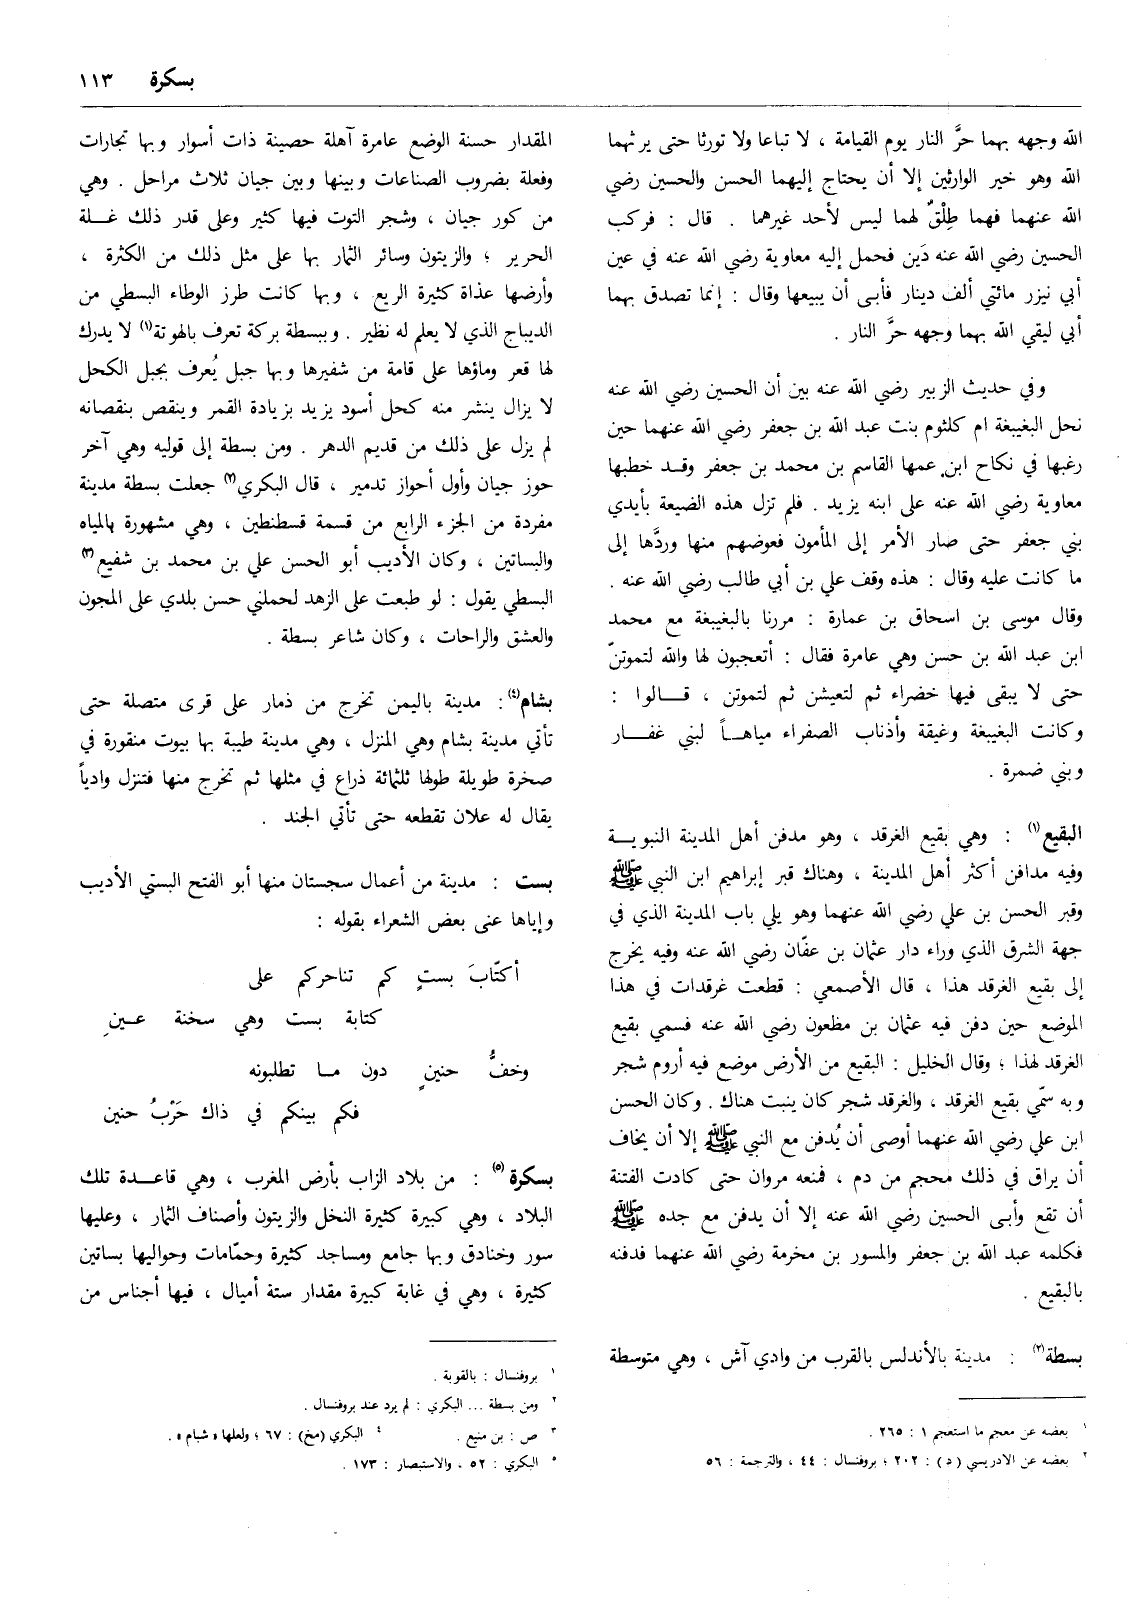 بسكرة ١١٣
الله وجهه بهما حرَّ النار يوم القيامة ، لا تباعا ولا تورثا حتى يرثهما
الله وهو خير الوارثين إلا أن يحتاج إليهما الحسن والحسين رضي
الله عنهما فهما طِلْقٌ لهما ليس لأحد غيرهما . قال : فركب
الحسين رضي الله عنه دَين فحمل إليه معاوية رضي الله عنه في عين
أبي نيزر مائتي ألف دينار فأبى أن يبيعها وقال : إنما تصدق بهما
أبي ليقي الله بهما وجهه حرَّ النار .
وفي حديث الزبير رضي الله عنه بين أن الحسين رضي الله عنه
نحل البغيبغة ام كلثوم بنت عبد الله بن جعفر رضي الله عنهما حين
رغبها في نكاح ابن عمها القاسم بن محمد بن جعفر وقد خطبها
معاوية رضي الله عنه على ابنه يزيد . فلم تزل هذه الضيعة بأيدي
بني جعفر حتى صار الأمر إلى المأمون فعوضهم منها وردَّها إلى
ما كانت عليه وقال : هذه وقف علي بن أبي طالب رضي الله عنه .
وقال موسى بن اسحاق بن عمارة : مررنا بالبغيبغة مع محمد
ابن عبد الله بن حسن وهي عامرة فقال : أتعجبون لها والله لتموتنّ
حتى لا يبقى فيها خضراء ثم لتعيشن ثم لتموتن ، قالوا :
وكانت البغيبغة وغيقة وأذناب الصفراء مياهاً لبني غفار
وبني ضمرة .
البقيع(١) : وهي بقيع الغرقد ، وهو مدفن أهل المدينة النبوية
وفيه مدافن أكثر أهل المدينة ، وهناك قبر إبراهيم ابن النبي ﷺ
وقبر الحسن بن علي رضي الله عنهما وهو يلي باب المدينة الذي في
جهة الشرق الذي وراء دار عثمان بن عفّان رضي الله عنه وفيه يخرج
إلى بقيع الغرقد هذا ، قال الأصمعي : قطعت غرقدات في هذا
الموضع حين دفن فيه عثمان بن مظعون رضي الله عنه فسمي بقيع
الغرقد لهذا ؛ وقال الخليل : البقيع من الأرض موضع فيه أروم شجر
وبه سمّي بقيع الغرقد ، والغرقد شجر كان ينبت هناك . وكان الحسن
ابن علي رضي الله عنهما أوصى أن يُدفن مع النبي ﷺ إلا أن يخاف
أن يراق في ذلك محجم من دم ، فمنعه مروان حتى كادت الفتنة
أن تقع وأبى الحسين رضي الله عنه إلا أن يدفن مع جده ﷺ
فكلمه عبد الله بن جعفر والمسور بن مخرمة رضي الله عنهما فدفنه
بالبقيع .
بسطة(٢) : مدينة بالأندلس بالقرب من وادي آش ، وهي متوسطة
١ بعضه عن معجم ما استعجم ١ : ٢٦٥ .
٢ بعضه عن الادريسي (د) : ٢٠٢ ؛ بروفنسال : ٤٤ ، والترجمة : ٥٦
المقدار حسنة الوضع عامرة آهلة حصينة ذات أسوار وبها تجارات
وفعلة بضروب الصناعات وبينها وبين جيان ثلاث مراحل . وهي
من كور جيان ، وشجر التوت فيها كثير وعلى قدر ذلك غلة
الحرير ؛ والزيتون وسائر الثمار بها على مثل ذلك من الكثرة ،
وأرضها عذاة كثيرة الريع ، وبها كانت طرز الوطاء البسطي من
الديباج الذي لا يعلم له نظير . وببسطة بركة تعرف بالهوتة(١) لا يدرك
لها قعر وماؤها على قامة من شفيرها وبها جبل يُعرف بجبل الكحل
لا يزال ينشر منه كحل أسود يزيد بزيادة القمر وينقص بنقصانه
لم يزل على ذلك من قديم الدهر . ومن بسطة إلى قوليه وهي آخر
حوز جيان وأول أحواز تدمير ، قال البكري(٢) جعلت بسطة مدينة
مفردة من الجزء الرابع من قسمة قسطنطين ، وهي مشهورة بالمياه
والبساتين ، وكان الأديب أبو الحسن علي بن محمد بن شفيع(٣)
البسطي يقول : لو طبعت على الزهد لحملني حسن بلدي على المجون
والعشق والراحات ، وكان شاعر بسطة .
بشام(٤) : مدينة باليمن تخرج من ذمار على قرى متصلة حتى
تأتي مدينة بشام وهي المنزل ، وهي مدينة طيبة بها بيوت منقورة في
صخرة طويلة طولها ثلثمائة ذراع في مثلها ثم تخرج منها فتنزل وادياً
يقال له علان تقطعه حتى تأتي الجند .
بست : مدينة من أعمال سجستان منها أبو الفتح البستي الأديب
وإياها عنى بعض الشعراء بقوله :
أكتّابَ بستٍ كم تناحركم على
كتابة بست وهي سخنة عينِ
وخفُّ حنينٍ دون ما تطلبونه
فكم بينكم في ذاك حَرْبُ حنين
بسكرة(٥) : من بلاد الزاب بأرض المغرب ، وهي قاعدة تلك
البلاد ، وهي كبيرة كثيرة النخل والزيتون وأصناف الثمار ، وعليها
سور وخنادق وبها جامع ومساجد كثيرة وحمّامات وحواليها بساتين
كثيرة ، وهي في غابة كبيرة مقدار ستة أميال ، فيها أجناس من
١ بروفنسال : بالقوبة .
٢ ومن بسطة ... البكري : لم يرد عند بروفنسال .
٣ ص : بن منيع . ٤ البكري (مخ) : ٦٧ ؛ ولعلها « شبام » .
٥ البكري : ٥٢ ، والاستبصار : ١٧٣ .